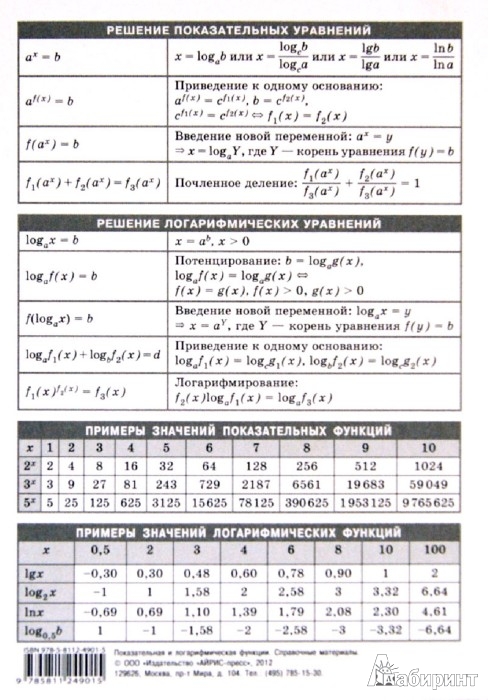 РЕШЕНИЕ ПОКАЗАТЕЛЬНЫХ УРАВНЕНИЙ
aˣ = b
x = logₐb или x = log꜀b/log꜀a или x = lgb/lga или x = ln b/ln a
a^f(x) = b
Приведение к одному основанию:
a^f(x) = c^f₁(x), b = c^f₂(x),
c^f₁(x) = c^f₂(x) ⇔ f₁(x) = f₂(x)
f(aˣ) = b
Введение новой переменной: aˣ = y
⇒ x = logₐY, где Y — корень уравнения f(y) = b
f₁(aˣ) + f₂(aˣ) = f₃(aˣ)
Почленное деление: f₁(aˣ)/f₃(aˣ) + f₂(aˣ)/f₃(aˣ) = 1
РЕШЕНИЕ ЛОГАРИФМИЧЕСКИХ УРАВНЕНИЙ
logₐx = b
x = aᵇ, x > 0
logₐf(x) = b
Потенцирование: b = logₐg(x),
logₐf(x) = logₐg(x) ⇔
f(x) = g(x), f(x) > 0, g(x) > 0
f(logₐx) = b
Введение новой переменной: logₐx = y
⇒ x = a^Y, где Y — корень уравнения f(y) = b
logₐf₁(x) + log_b f₂(x) = d
Приведение к одному основанию:
logₐf₁(x) = log꜀g₁(x), log_b f₂(x) = log꜀g₂(x)
f₁(x)^f₂(x) = f₃(x)
Логарифмирование:
f₂(x)logₐf₁(x) = logₐf₃(x)
ПРИМЕРЫ ЗНАЧЕНИЙ ПОКАЗАТЕЛЬНЫХ ФУНКЦИЙ
x 1 2 3 4 5 6 7 8 9 10
2ˣ 2 4 8 16 32 64 128 256 512 1024
3ˣ 3 9 27 81 243 729 2187 6561 19683 59049
5ˣ 5 25 125 625 3125 15625 78125 390625 1953125 9765625
ПРИМЕРЫ ЗНАЧЕНИЙ ЛОГАРИФМИЧЕСКИХ ФУНКЦИЙ
x 0,5 2 3 4 6 8 10 100
lgx −0,30 0,30 0,48 0,60 0,78 0,90 1 2
log₂x −1 1 1,58 2 2,58 3 3,32 6,64
lnx −0,69 0,69 1,10 1,39 1,79 2,08 2,30 4,61
log₀,₅b 1 −1 −1,58 −2 −2,58 −3 −3,32 −6,64
ISBN 978-5-8112-4901-5
9 785811 249015
Показательная и логарифмическая функции. Справочные материалы.
© ООО «Издательство «АЙРИС-пресс», 2012
129626, Москва, пр-т Мира, д. 104. Тел. (495) 785-15-30.
Лабиринт